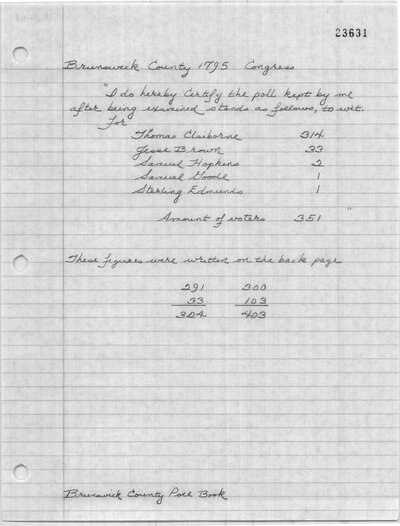 23631
Brunswick County 1795 Congress
"I do hereby Certify the poll kept by me
after being examined stands as follows, to wit.
For
Thomas Claiborne 314
Jesse Brown 33
Samuel Hopkins 2
Samuel Goode 1
Sterling Edmunds 1
Amount of voters 351 "
These figures were written on the back page
291 300
33 103
324 403
Brunswick County Poll Book